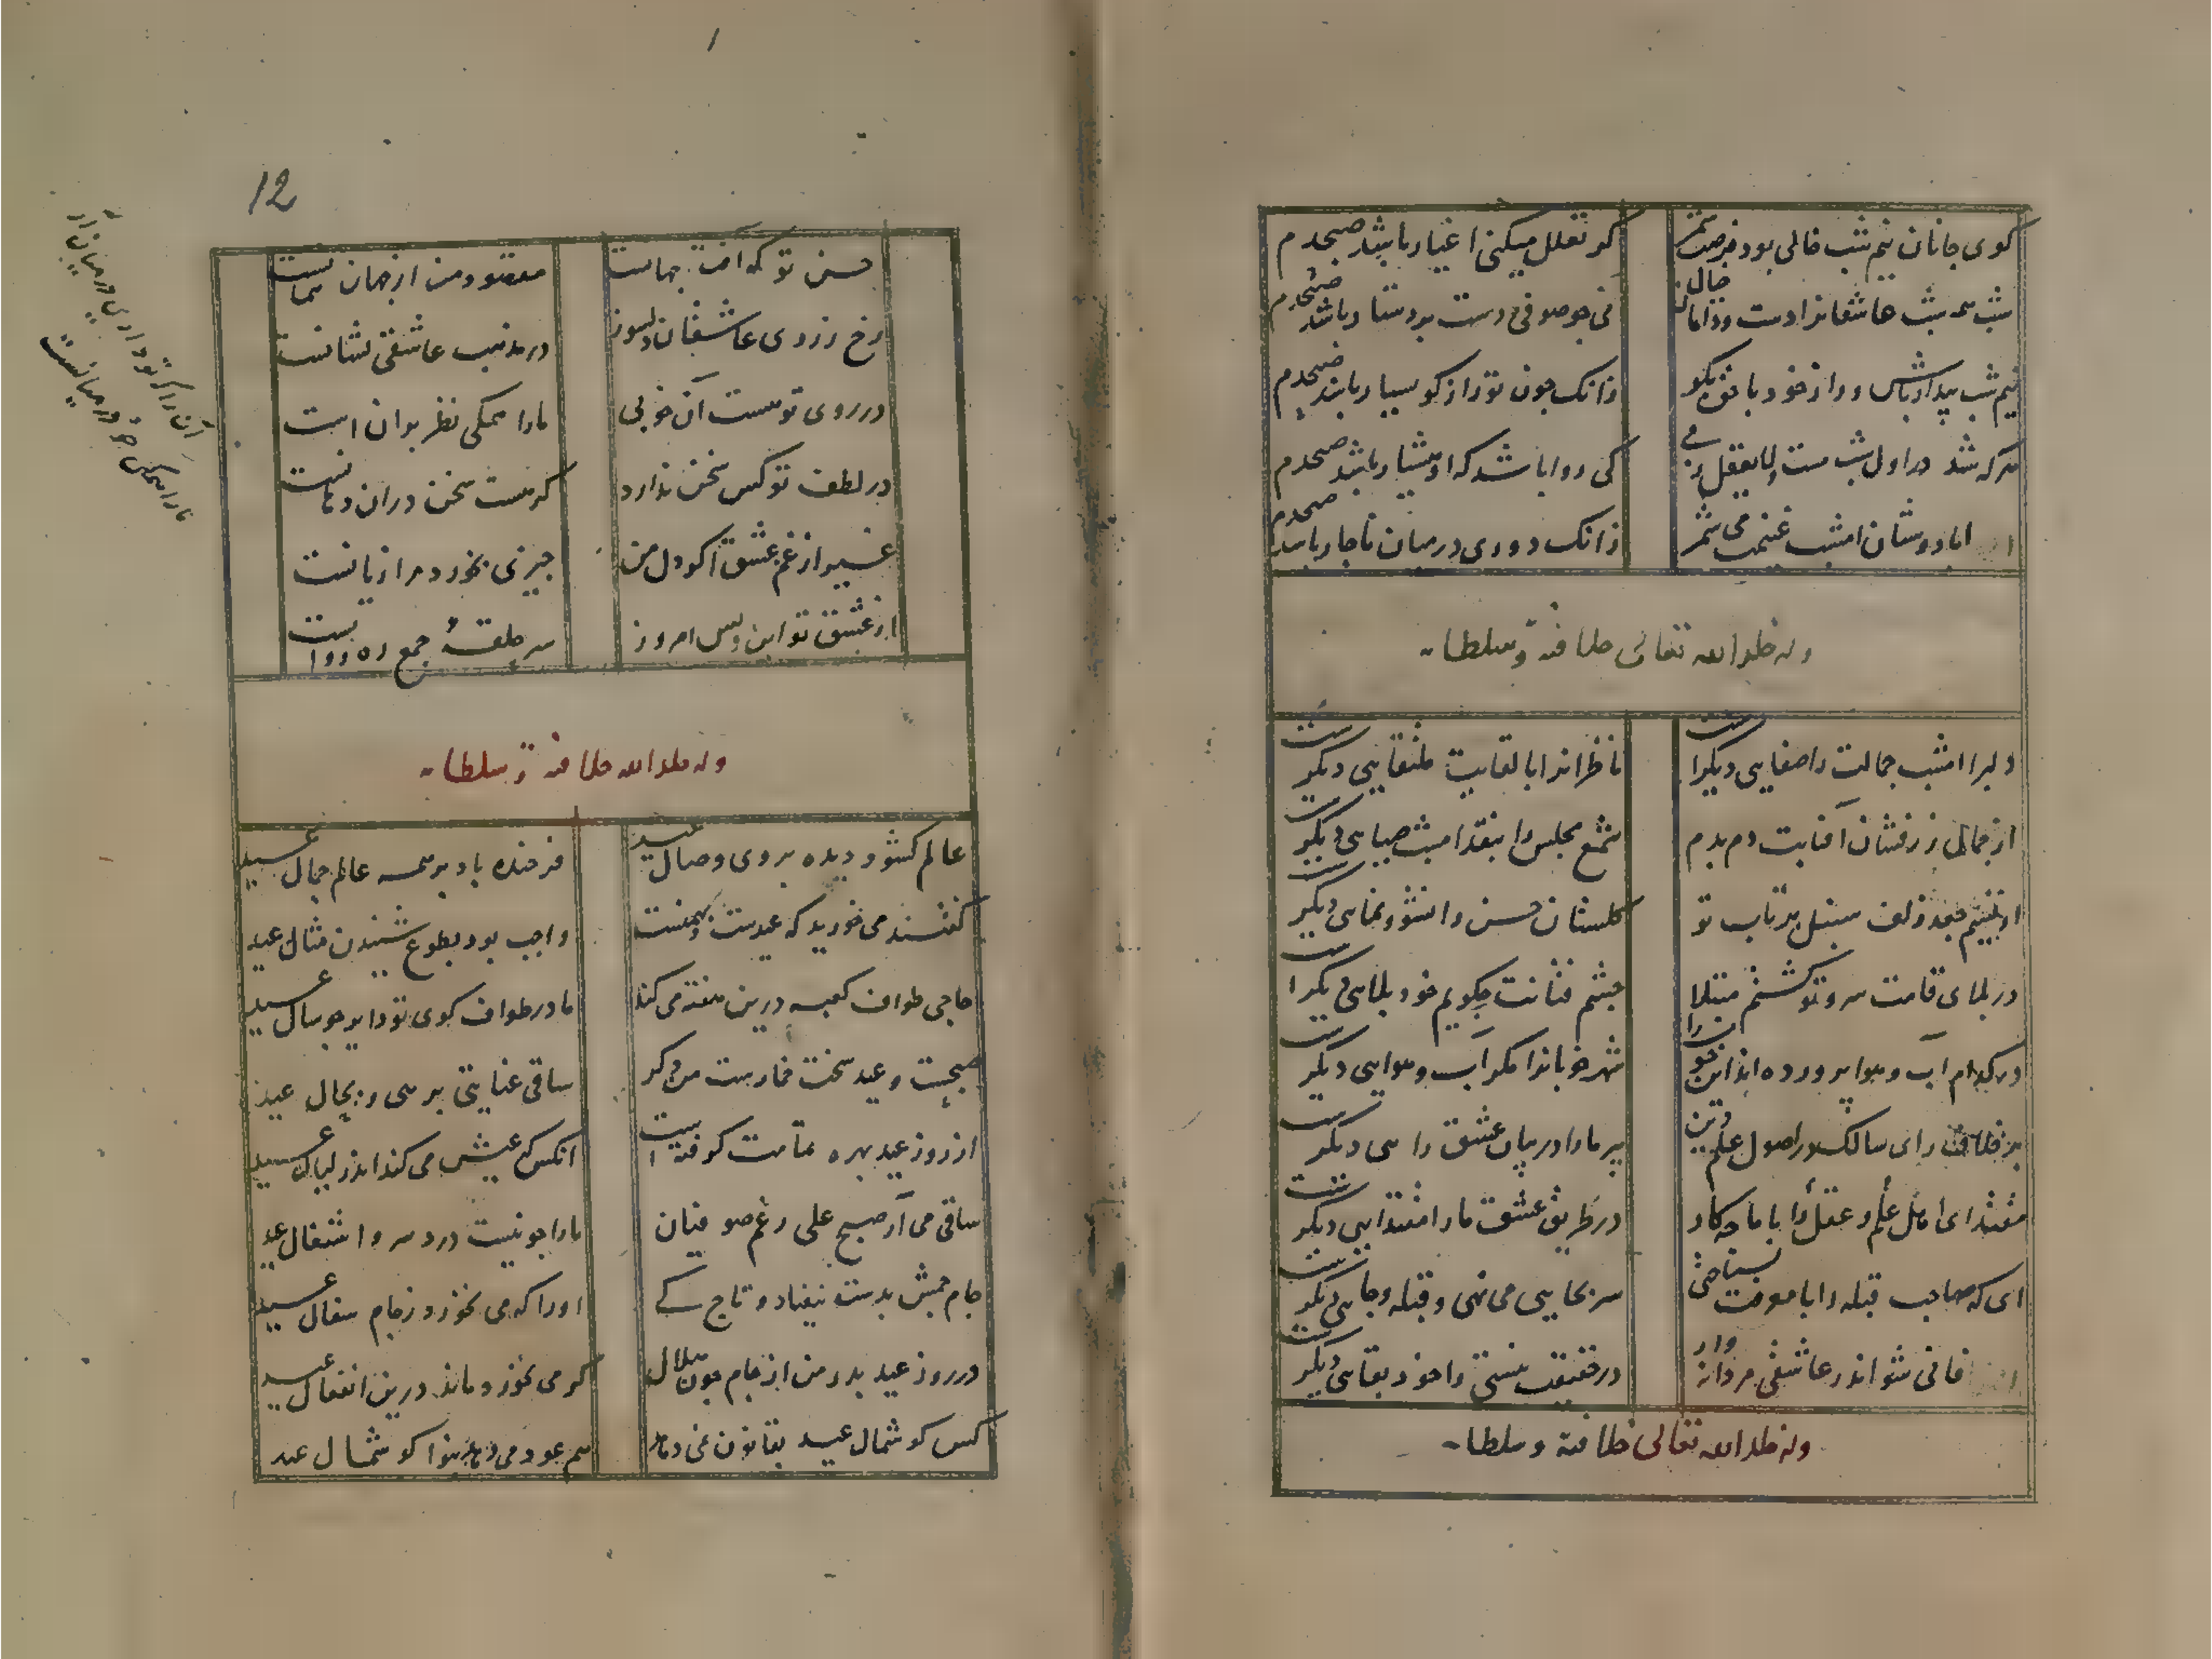 کوی جانان نیم شب خالی بود فرصت شمر
کر تعلل میکنی اغیار باشد صبحدم
شب همه شب عاشقانرا دست و دامان
نی جو صوفی دست بر دستار باشد صبحدم
نیم شب بیدار باش و راز خود با حق بکو
زانک جون تو رازکو بسیار باشد صبحدم
هرکه شد در اول شب مست و لایعقل ز می
کی روا باشد که او هشیار باشد صبحدم
با دوستان امشب غنیمت می شمر
زانک دوری در میان ناجار باشد صبحدم
وله خلد الله تعالی خلافته و سلطانه
دلبرا امشب جمالت را صفایی دیکرست
ناظرانرا با لقایت ملتقایی دیکرست
از جمال زرفشان آفتابت دم بدم
شمع مجلس را بنقد امشب ضیایی دیکرست
از نسیم جعد زلف سنبل پرتاب تو
کلستان حسن را نشو و نمایی دیکرست
در بلای قامت سرو تو کشتم مبتلا
جشم فتانت جکویم خود بلایی دیکرست
در کدام آب و هوا پرورده اند این خوب را
شهر خوبانرا مکر آب و هوایی دیکرست
بر خلاف رای سالک در اصول علم دین
پیر ما را در میان عشق رایی دیکرست
مقتدای اهل علم و عقل را با ما جه کار
در طریق عشق ما را مقتدایی دیکرست
ای که صاحب قبله را با معرفت نشناختی
سر بجایی می نهی و قبله جایی دیکرست
فانی شو اندر عاشقی مردانه وار
در حقیقت نیستی را خود بقایی دیکرست
وله خلد الله تعالی خلافته و سلطانه
12
حسن تو که آفت جهانست
مقصود من از جهان همانست
رخ زردی عاشقان دلسوز
در مذهب عاشقی نشانست
در روی تو هست آن خوبی
ما را همکی نظر بران است
در لطف تو کس سخن ندارد
کر هست سخن دران دهانست
غیر از غم عشق کو دل من
جیزی نخورد مرا زیانست
از عشق تو این امروز
سر حلقهٔ جمع
آن را که تو داری در میان آر
ما را همکی جو در میانست
وله خلد الله خلافته و سلطانه
عالم کشود دیده بروی وصال عید
فرخنده باد بر همه عالم جمال عید
کفتند می خورید که عیدست
واجب بود بطوع شنیدن مثال عید
حاجی طواف کعبه درین هفته می کند
ما در طواف کوی تو دایم جو سال عید
صبحست و عید سخت خمارست می دکر
ساقی عنایتی برسی و بحال عید
از روز عید بهره تمامت کرفته است
انکس که عیش می کند اندر لیال عید
ساقی می آر صبح علی رغم صوفیان
ما را جو نیست درد سر و اشتغال عید
جام جمش بدست نیفتاد و تاج کی
اورا که می نخورد ز جام سفال عید
در روز عید بدر من از جام جون هلال
کر می نخورد ماند درین انفعال عید
کس کوشمال عید بقانون نمی دهد
هم عود می دهد بنوا کوشمال عید